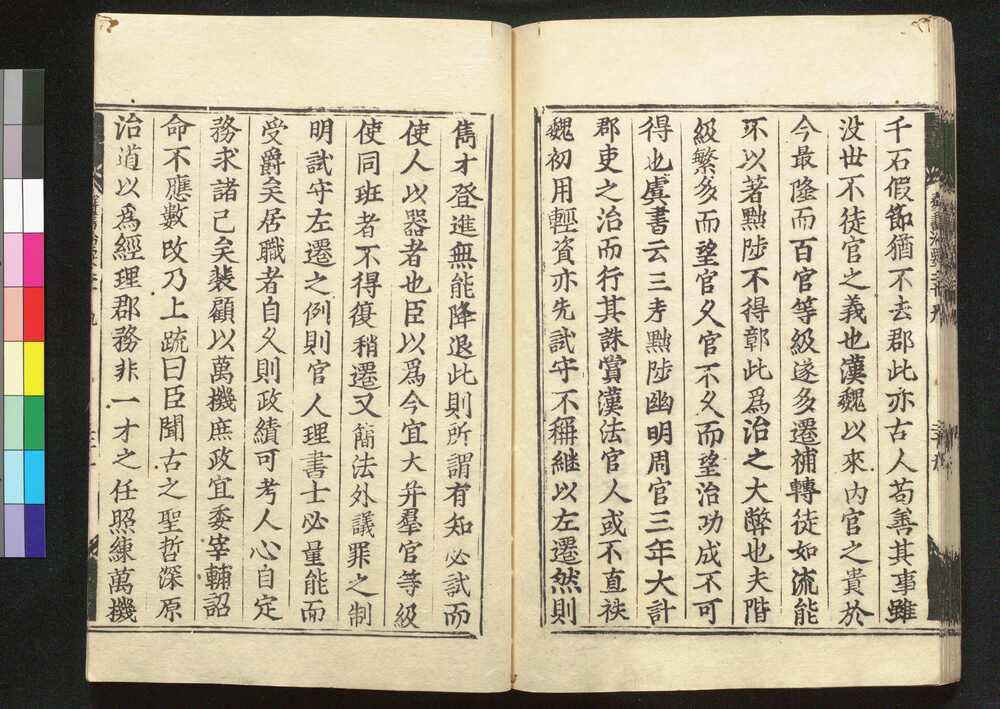 千石假節猶不去郡此亦古人苟善其事雖
没世不徒官之義也漢魏以來内官之貴於
今最隆而百官等級遂多遷補轉徒如流能
不以著黜陟不得彰此爲治之大弊也夫階
級繁多而望官久官不久而望治功成不可
得也虞書云三考黜陟幽明周官三年大計
郡吏之治而行其誅賞漢法官人或不直秩
魏初用輕資亦先試守不稱継以左遷然則
雋才登進無能降退此則所謂有知必試而
使人以器者也臣以爲今宜大并羣官等級
使同班者不得復稍遷又簡法外議罪之制
明試守左遷之例則官人理書士必量能而
受爵矣居職者自久則政績可考人心自定
務求諸己矣裴顧以萬機庶政宜委宰輔詔
命不應數改乃上疏曰臣聞古之聖哲深原
治道以爲經理郡務非一才之任照練萬機